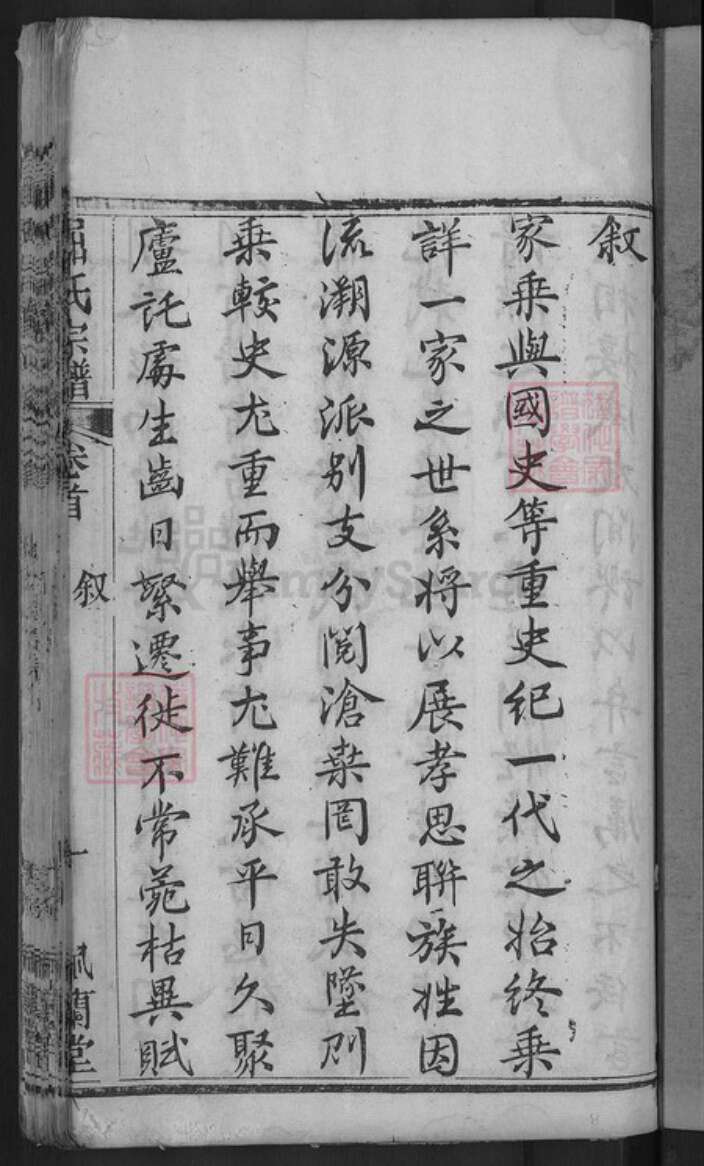 叙
家乗與國史等重史紀一代之始終乗
詳一家之世系將以展孝思聨族姓因
流溯源派别支分閲滄桒罔敢失墜則
乗較史尤重而舉事尤難承平日久聚
廬託處生齒日繁遷徙不常菀枯異賦
屈氏宗譜 卷首 叙 一 佩蘭堂